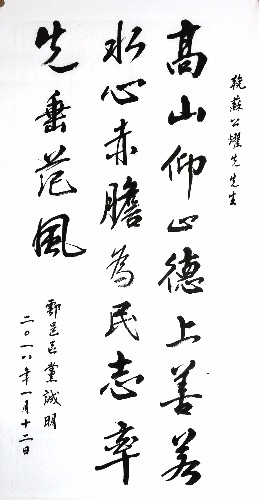 輓蘇公耀先先生
高山仰止德上善若
水心赤膽為民志率
先垂范風
鄠邑區黨誠明
二〇一八年一月十二日